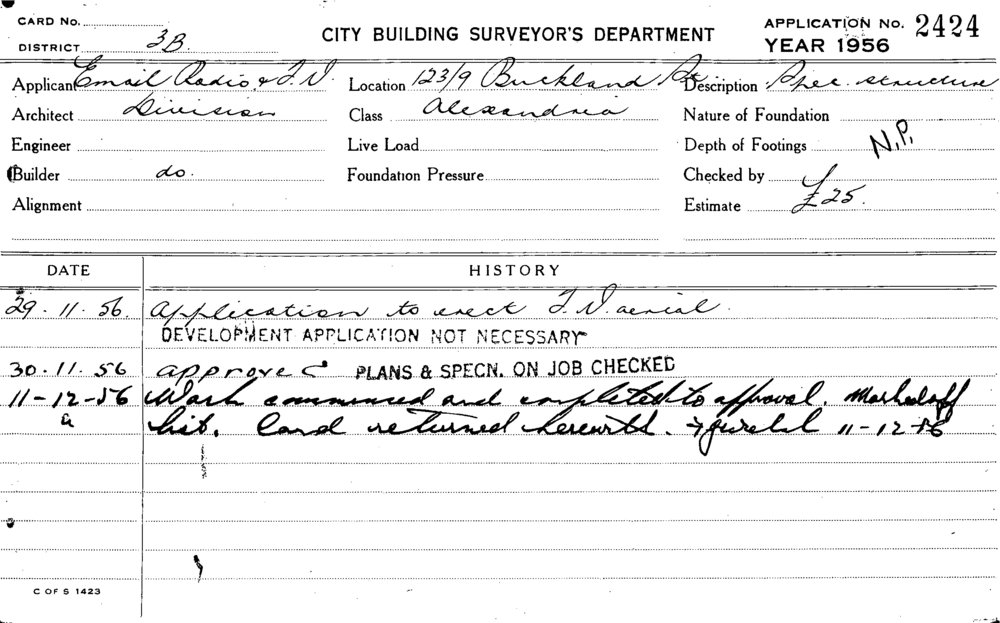 CARD No.
DISTRICT 3B
CITY BUILDING SURVEYOR'S DEPARTMENT
APPLICATION No. 2424
YEAR 1956
Applicant Email Radio & T.V. Division
Location 123/9 Buckland
Description Spec. structure
Architect
Class Alexandria
Nature of Foundation
Engineer
Live Load
Depth of Footings N.P.
Builder do.
Foundation Pressure
Checked by
Alignment
Estimate £25.
DATE HISTORY
29.11.56. Application to erect T.V. aerial.
DEVELOPMENT APPLICATION NOT NECESSARY
30.11.56 approved PLANS & SPECN. ON JOB CHECKED
11-12-56 Work commenced and completed to approval. Marked off
list. Card returned herewith. 11-12-56
C OF S 1423